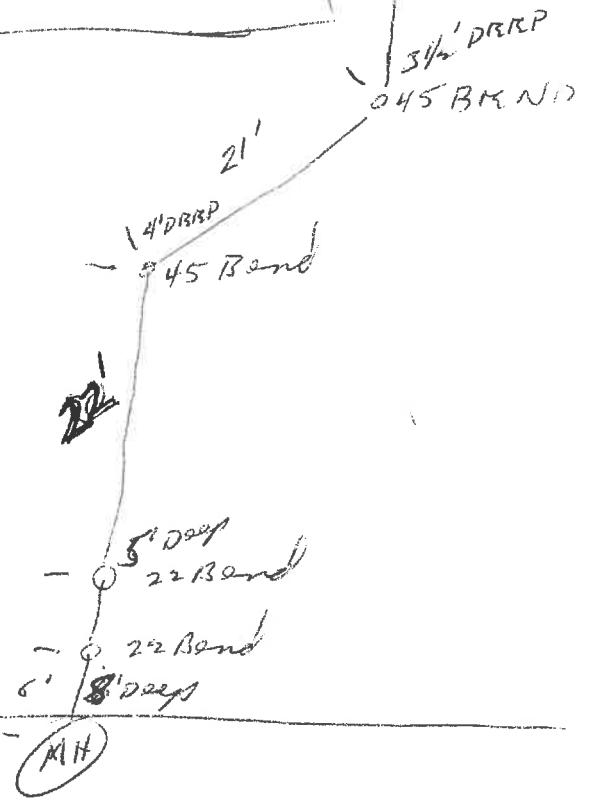 3½' DEEP
45 BEND
21'
4' DEEP
45 Bend
22'
5' Deep
22 Bend
22 Bend
6'
8' Deep
MH